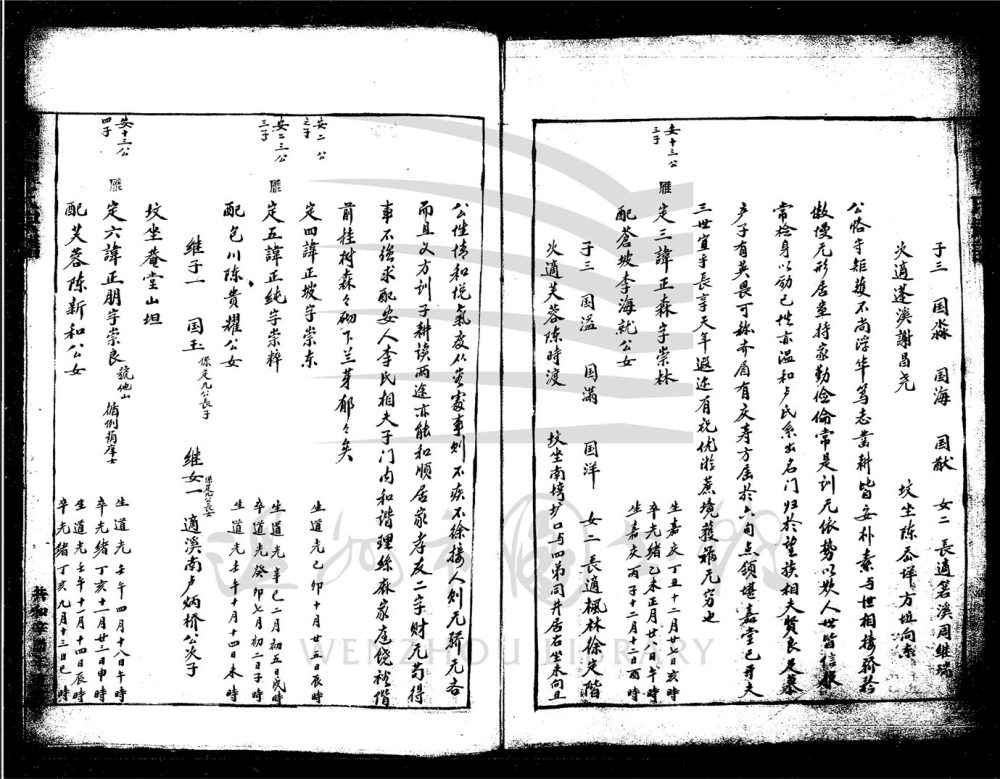 子三 国淼 国海 国猷 女二 長適茗溪周继瑞
次適蓬溪謝昌尧 坟坐陈岙垟方坵向东
公恪守矩矱不尚浮华篤志啬耕皆安朴素与世相接矜矜
傲慢无形居室持家勤俭倫常是训无依势以欺人世皆信报
常检身以勖己性亦温和卢氏系出名门归於望族相夫贤良是慕
夕子有英畏可称齐眉有庆寿方届於六旬点颔堪嘉堂已开夫
三世宜乎長享天年遐迩有祝优游蔗境獲福无穷也
安十三公三子 雁 定三諱正森字崇林 生嘉庆丁丑十二月廿七日亥時 卒光绪乙未正月廿八日午時
配蒼坡李海訧公女 生嘉庆丙子十二月十二日酉時
子三 国温 国滿 国洋 女二 長適楓林徐定階
次適芙蓉陈時渡 坟坐南塆垆口与四弟同井居右坐未向丑
公性情和悦氣度从容處事则不疾不徐接人则无骄无吝
而且义方训子耕读两途亦能和順居家孝友二字财无苟得
事不强求配安人李氏相夫子门内和谐理絲麻家庭饶裕階
前挂树森々砌下兰芽郁々矣
安二公之子 定四諱正坡字崇东 生道光己卯十月廿五日辰時
安二三公三子 雁 定五諱正纯字崇粹 生道光辛巳二月初五日戌時 卒道光癸卯七月初二日子時
配包川陈贵耀公女 生道光壬午十月十四日未時
继子一 国玉 係定九公長子 继女一 係定九公長女 適溪南卢炳桥公次子
坟坐庵堂山坦
安十三公四子 雁 定六諱正朋字崇良 號他山 循例捐庠士 生道光壬午四月十八日午時 卒光緒丁亥十一月廿三日申時
配芙蓉陈新和公女 生道光壬午十一月十四日辰時 卒光緒丁亥九月十三日巳時
WENZHOU LIBRARY